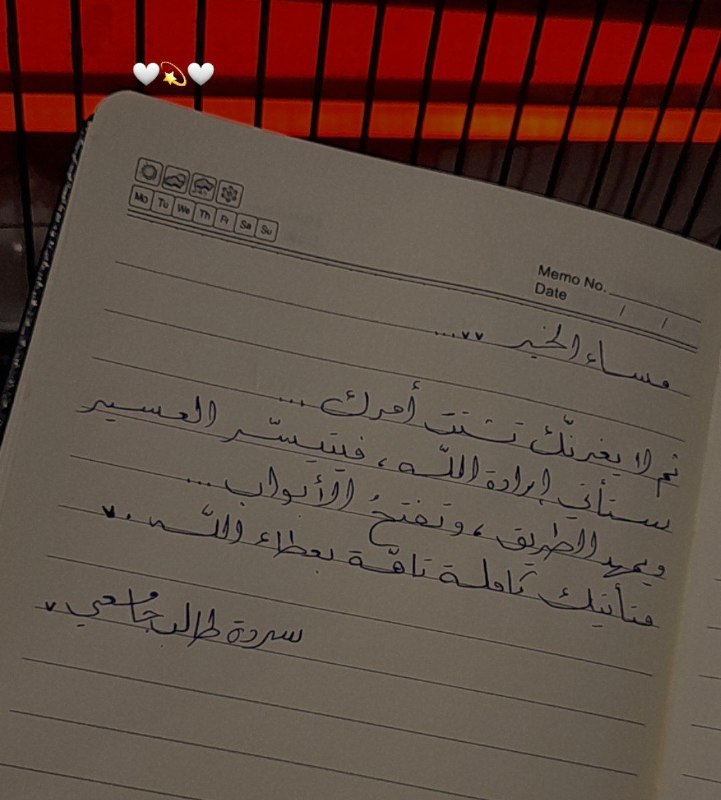 Mo Tu We Th Fr Sa Su
Memo No.
Date / /
مساء الخير ...
ثم لا يغرنّك تشتت أمرك ...
ستأتي إرادة اللّه، فيتيسّر العسير
ويمهد الطريق، وتفتحُ الأبواب ...
فتأتيك كاملة تامّة بعطاء اللّه ..
سردة طالب جامعي